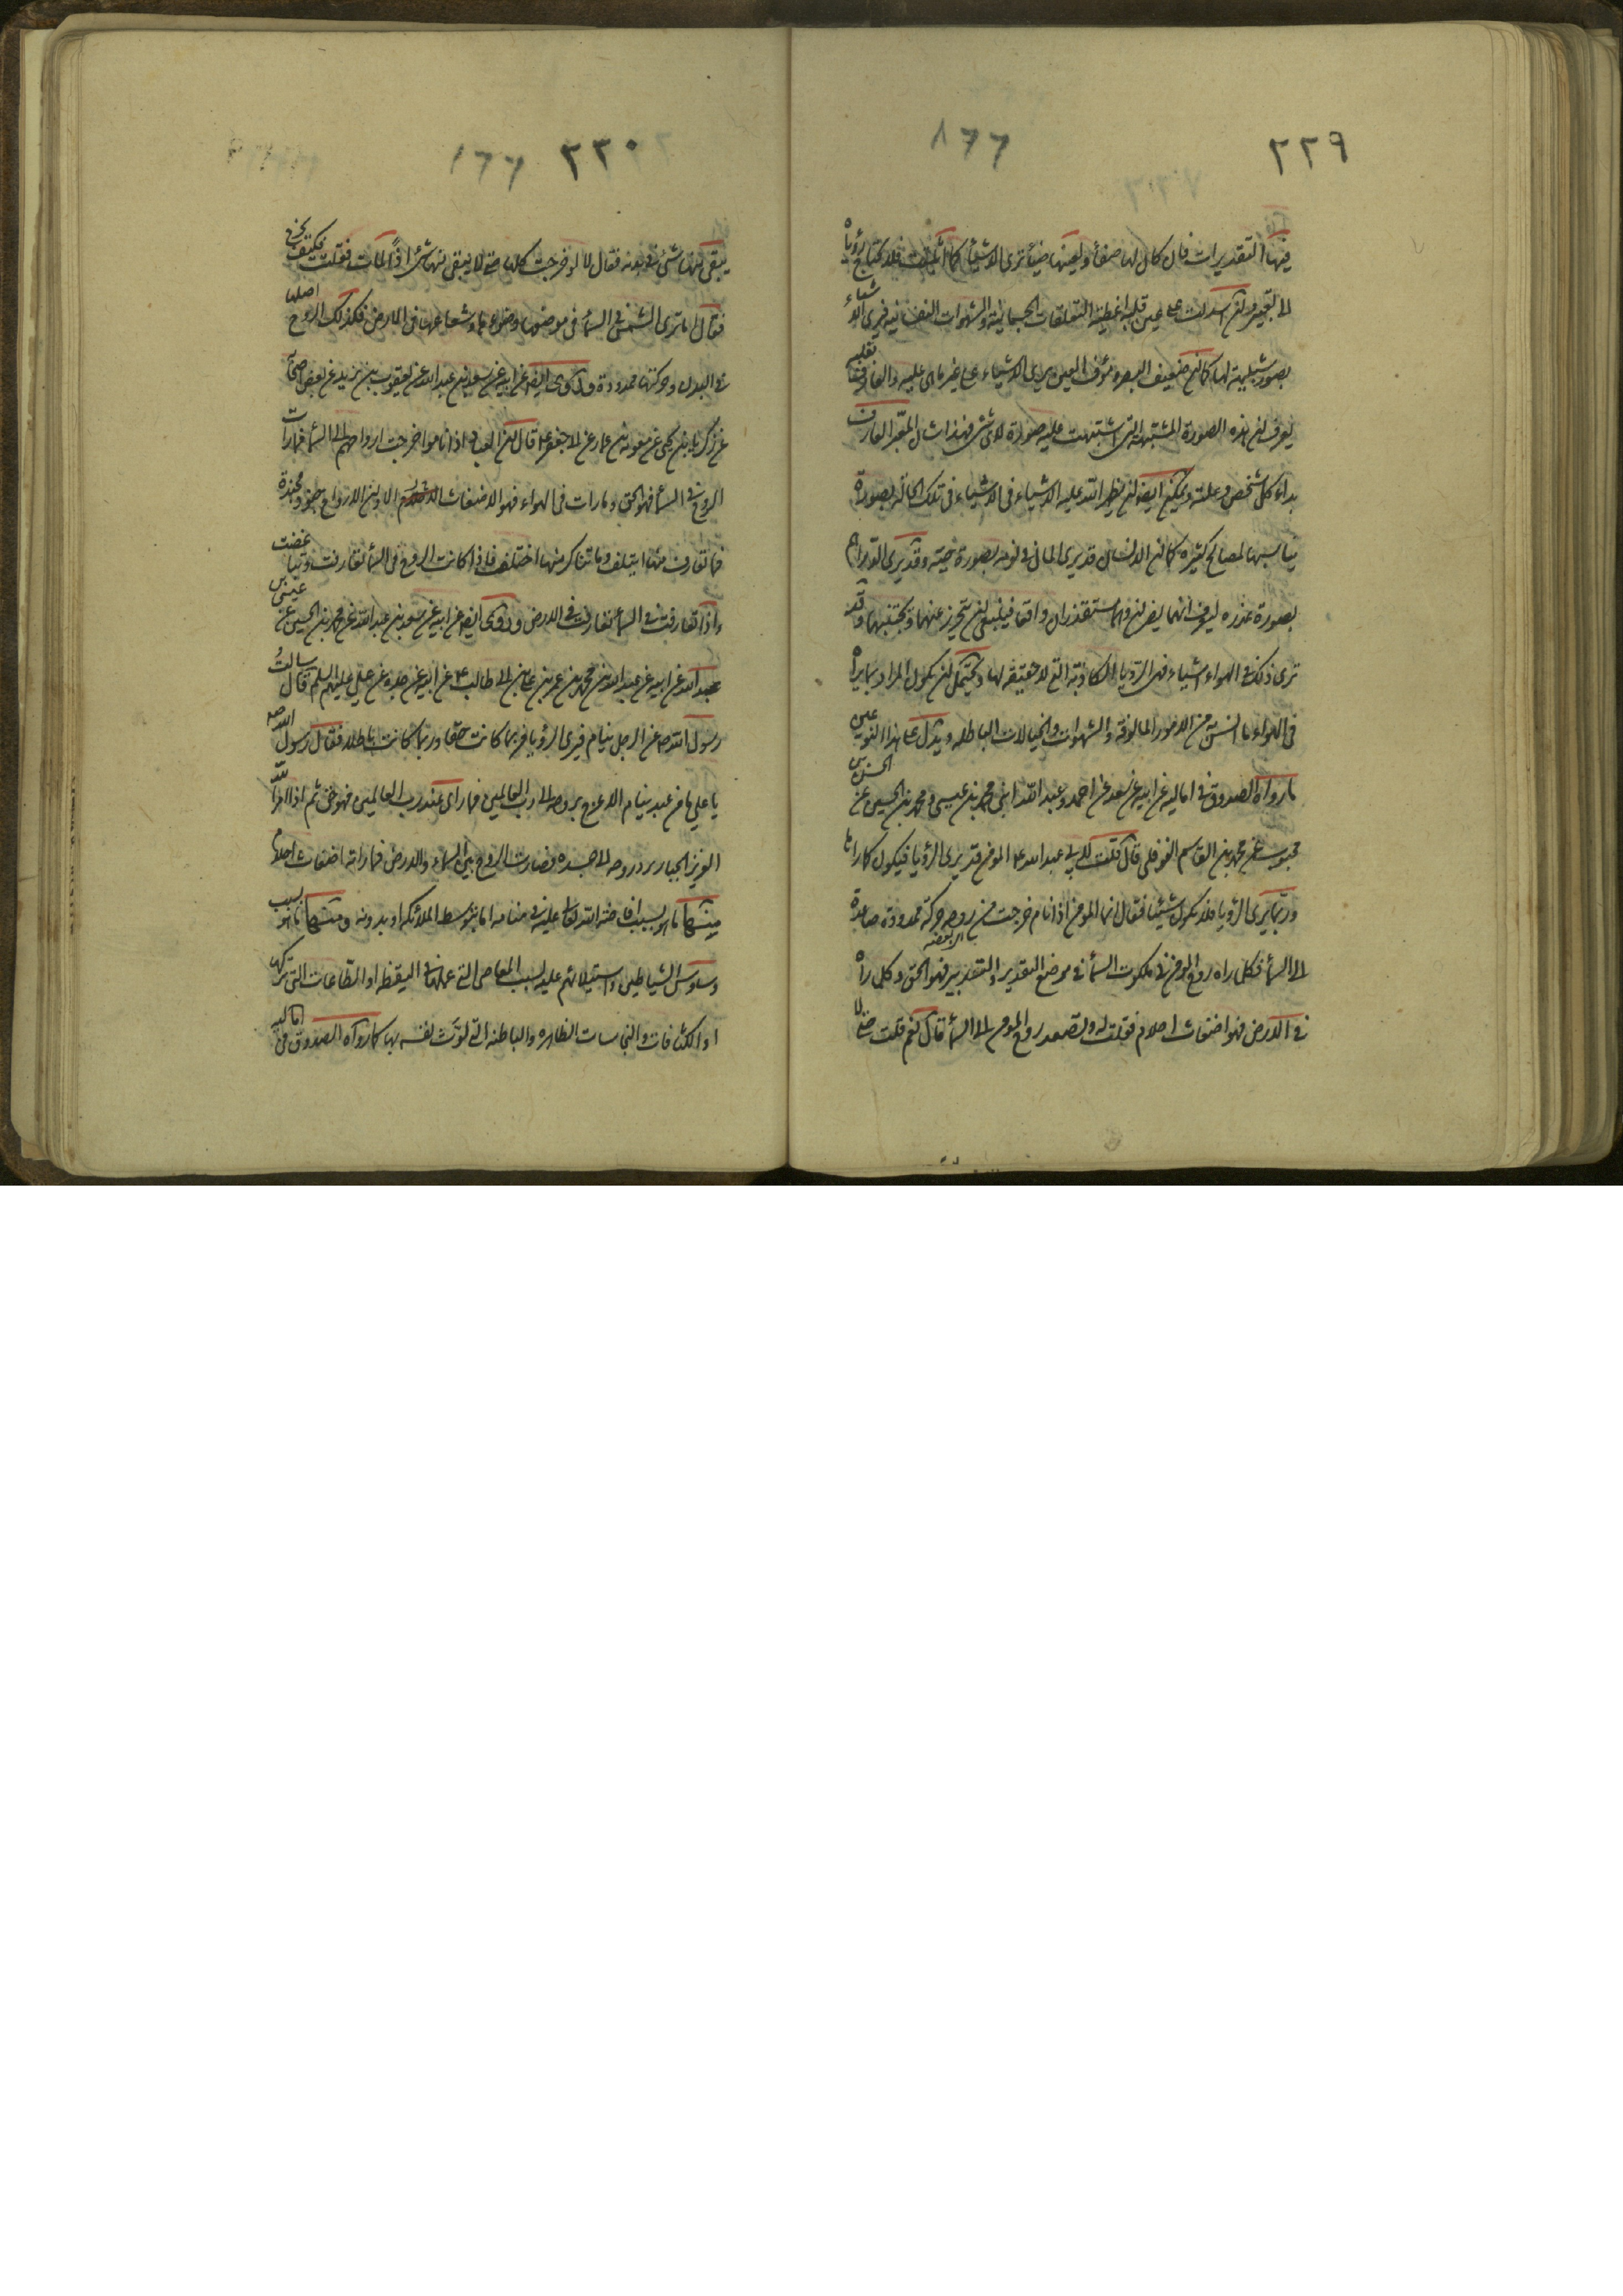 ٢٢٩
١٦٦
فيها التقديرات فان كان لها صفاء ولعينها ضياء ترى الاشياء كما اثبتت فلا يحتاج رؤياه
الى تعبير وان اسدلت على عين قلبه اغطية التعلقات الجسمانية والشهوات النفسانية فيرى الاشياء
بصور شبيهة لها كما ان ضعيف البصر ومؤف العين يرى الاشياء على غير ما هي عليه والعارف بعلته
يعرف ان هذه الصورة المشتبهة التي اشتبهت عليه صورة لاى شئ فهذا شان المعبر العارف
بداء كل شخص وعلته ويمكن ايضا ان يظهر الله عليه الاشياء في تلك الحالة بصورة
يناسبها لمصالح كثيرة كما ان الانسان قد يرى المال في نومه بصورة حية وقد يرى الدراهم
بصورة عذرة ليعرف انهما يضران وهما مستقذران واقعا فينبغي ان يتحرز عنهما ويجتنبهما وقد
ترى في الهواء اشياء فهي الرؤيا الكاذبة التي لا حقيقة لها ويحتمل ان يكون المراد بما يراه
في الهواء ما انس به من الامور المالوفة والشهوات والخيالات الباطلة ويدل على هذا النوعين
ما رواه الصدوق في اماليه عن ابيه عن سعد عن احمد وعبد الله ابنى محمد بن عيسى ومحمد بن الحسين عن الحسن بن
محبوب عن محمد بن القاسم النوفلى قال قلت لابى عبد الله ع المؤمن قد يرى الرؤيا فيكون كما راها
وربما يرى الرؤيا فلا يكون شيئا فقال ان المؤمن اذا نام خرجت من روحه حركة ممدودة صاعدة
الى السماء فكل ما راه روح المؤمن في ملكوت السماء في موضع التقدير والتدبير فهو الحق وكل ما راه
في الارض فهو اضغاث احلام فقلت له وتصعد روح المؤمن الى السماء قال نعم قلت حتى لا
٢٣٠
١٦٦
يبقى منها شئ في بدنه فقال لا لو خرجت كلها حتى لا يبقى منها شئ اذا لمات فقلت فكيف يخرج
فقال اما ترى الشمس في السماء في موضعها وضوءها وشعاعها في الارض فكذلك الروح اصلها
في البدن وحركتها ممدودة وروى ايضا عن ابيه عن سعد بن عبد الله عن يعقوب بن يزيد عن بعض اصحابه
عن زكريا بن يحيى عن معوية بن عمار عن ابى جعفر ع قال ان العباد اذا ناموا خرجت ارواحهم الى السماء فما رات
الروح في السماء فهو الحق وما رات في الهواء فهو الاضغاث الا وان الارواح جنود مجندة
فما تعارف منها ايتلف وما تناكر منها اختلف فاذا كانت الروح في السماء تعارفت وتباغضت
واذا تعارفت في السماء تعارفت في الارض وروى ايضا عن ابيه عن سعد بن عبد الله عن محمد بن الحسين عن عيسى بن
عبد الله عن ابيه عن عبد الله بن محمد بن عمر بن على بن ابى طالب ع عن ابيه عن جده عن على عليهم السلم قال سالت
رسول الله ص عن الرجل ينام فيرى الرؤيا فربما كانت حقا وربما كانت باطلا فقال رسول الله ص
يا على ما من عبد ينام الا عرج بروحه الى رب العالمين فما راى عند رب العالمين فهو حق ثم اذا امر الله
العزيز الجبار برد روحه الى جسده فصارت الروح بين السماء والارض فما راته اضغاث احلام
منشأها ما هو بسبب افاضة الله تعالى عليه في منامه اما بتوسط الملائكة او بدونه ومنشأها ما هو بسبب
وساوس الشياطين واستيلائهم عليه بسبب المعاصى التي عملها في اليقظة او الطاعات التي تركها
او الكثافات والنجاسات الظاهرة والباطنة التي لوثت نفسه بها كما رواه الصدوق في اماليه